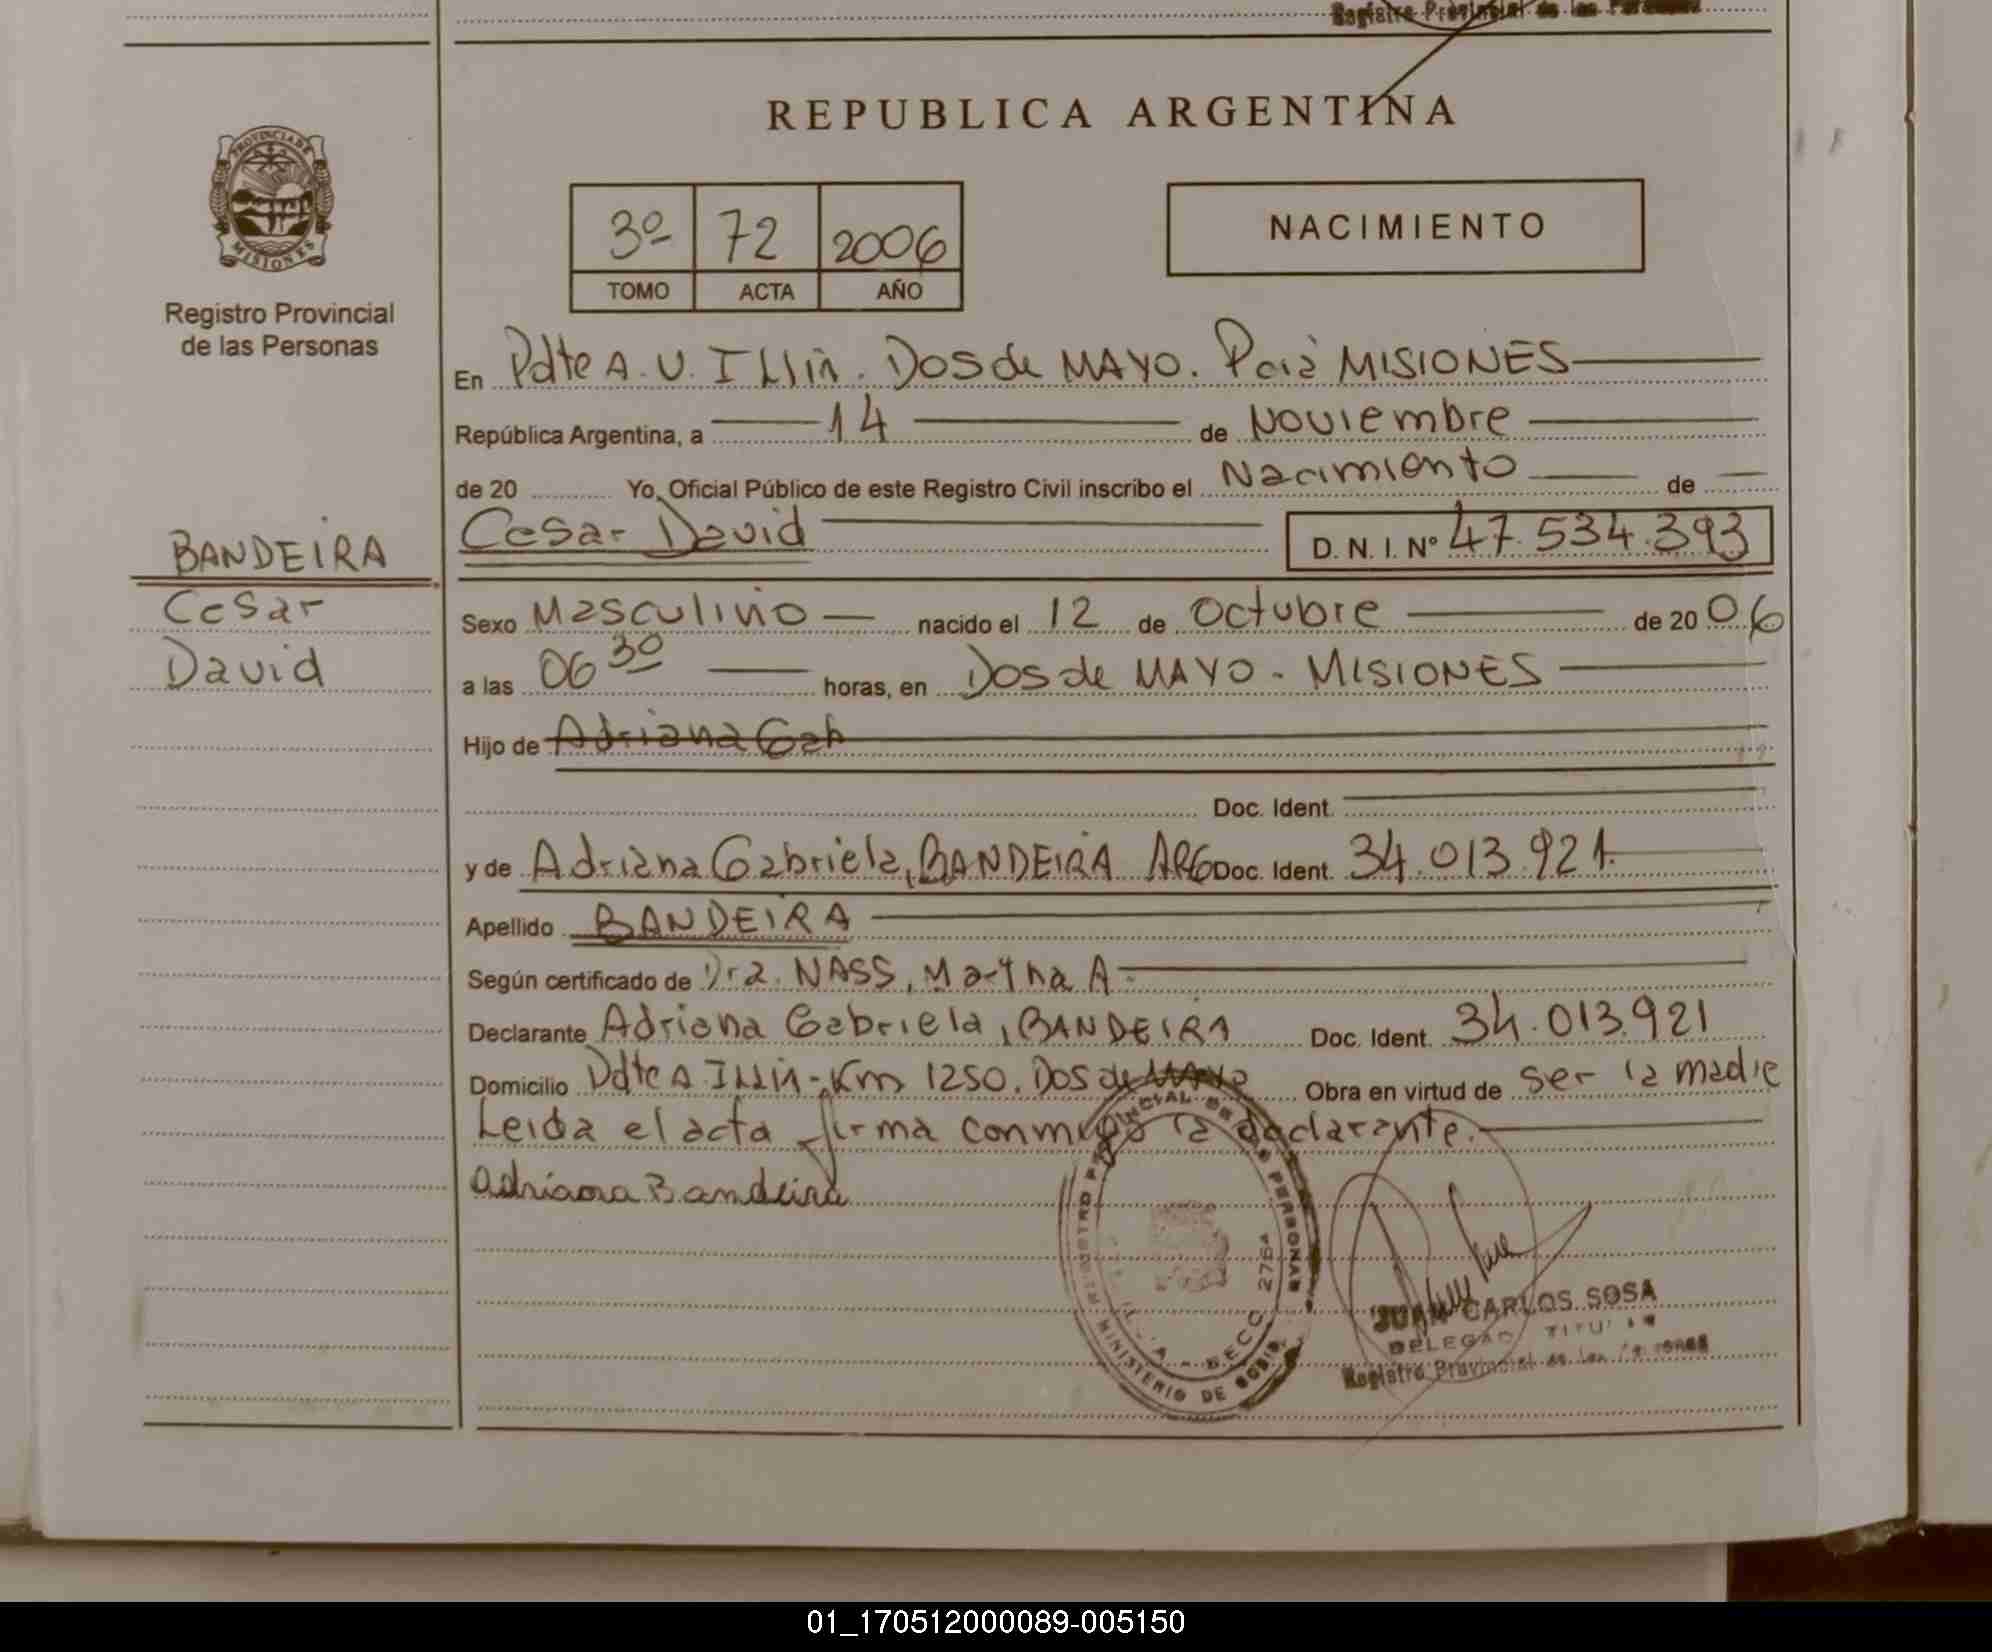 Registro Provincial de las Personas
REPUBLICA ARGENTINA
PROVINCIA DE
MISIONES
Registro Provincial
de las Personas
3º 72 2006
TOMO ACTA AÑO
NACIMIENTO
En Pdte A. U. Illia. Dos de MAYO. MISIONES
República Argentina, a 14 de Noviembre
de 20 Yo, Oficial Público de este Registro Civil inscribo el Nacimiento de
BANDEIRA
Cesar David D. N. I. Nº 47.534.393
Cesar
Sexo Masculino nacido el 12 de Octubre de 20 06
David
a las 06 30 horas, en Dos de MAYO - MISIONES
Hijo de Adriana Gab
Doc. Ident.
y de Adriana Gabriela, BANDEIRA ARG Doc. Ident. 34.013.921.
Apellido BANDEIRA
Según certificado de Dra. NASS, Martha A.
Declarante Adriana Gabriela, BANDEIRA Doc. Ident. 34.013.921
Domicilio Pdte A. Illia - Km 1250. Dos de MAYO Obra en virtud de ser la madre
Leida el acta firma conmigo la declarante.
Adriana Bandeira
REGISTRO PROVINCIAL DE LAS PERSONAS
MINISTERIO DE GOBIE
SECC. 276A
JUAN CARLOS SOSA
DELEGADO TITULAR
Registro Provincial de las Personas
01_170512000089-005150